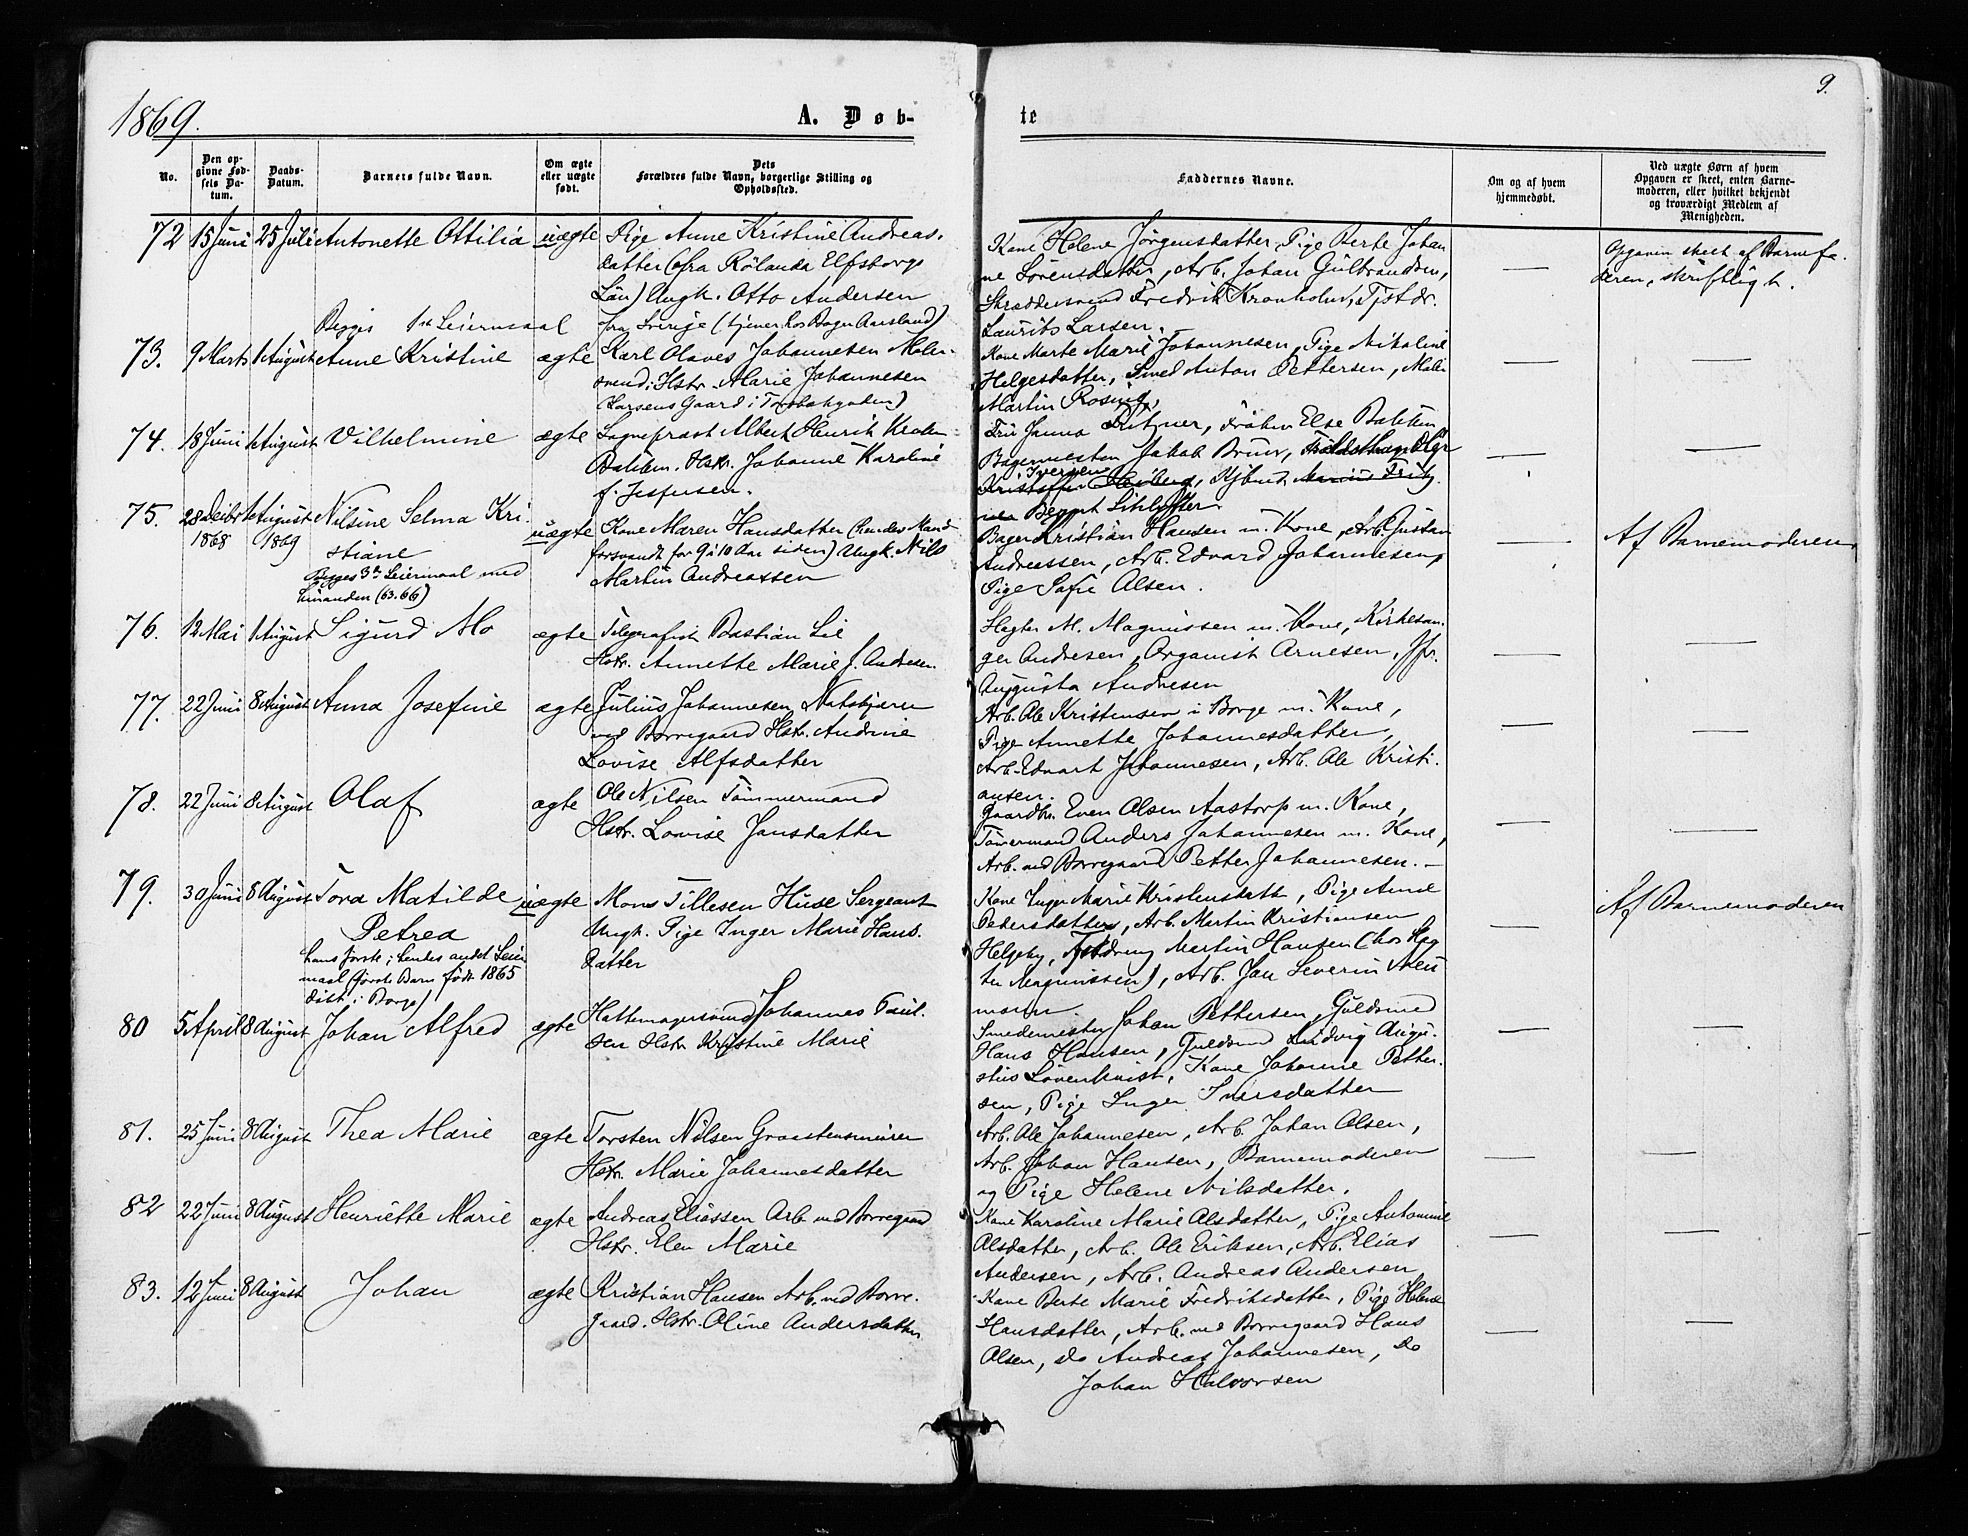 1869.
A. Døb-
te
9.
No.
Den op-
givne Fød-
sels Da-
tum.
Daabs-
Datum.
Barnets fulde Navn.
Om ægte
eller uægte
født.
Dets
Forældres fulde Navn, borgerlige Stilling og
Opholdssted.
Faddernes Navne.
Om og af hvem
hjemmedøbt.
Ved uægte Børn af hvem
Opgaven er skeet, enten Barne-
moderen, eller hvilket bekjendt
og troværdigt Medlem af
Menigheden.
72 15 Juni 25 Juli Antonette Ottilia uægte Pige Anne Kristine Andreas-
datter (fra Rølanda Elfsborgs
Län) Ungk. Otto Andersen
Begges 1ste Leiermaal
fra Sverige (tjener hos Bager Aarsland)
Kone Helene Jörgensdatter, Pige Berte Johan
ne Sörensdatter, Arb. Johan Gulbrandsen,
Skræddersvend Fredrik Kronholm, Tjstdr.
Laurits Larsen.
Opgaven skeet af Barnefa-
deren, skriftligt.
73. 9 Marts 1 August Anne Kristine ægte Karl Olaves Johannesen Maler-
svend; Hstr. Marie Johannesen
(Larsens Gaard i Torsbækgaden)
Kone Marte Marie Johannesen, Pige Nikoline
Helgesdatter, Smed Anton Pettersen, Maler
Martin Rosing,
74. 18 Juni 1 August Vilhelmine ægte Sogneprest Albert Henrik Krohn
Balchen. Hstr. Johanne Karoline
f. Jespersen.
Fru Janna Ditzner, Fröken Else Balchen
Bagermester Jakob Bruun,
Iversen
75. 28 Decbr 1868 1 August 1869 Nilsine Selma Kri-
stiane
Begges 3die Leiermaal med
hinanden (63.66)
uægte Kone Maren Hansdatter (hendes Mand
forsvandt for 9 à 10 Aar siden) Ungk. Nils
Martin Andreassen
Bager Kristian Hansen m. Kone, Arb. Gustav
Andreassen, Arb. Edvard Johannesen,
Pige Sofie Olsen.
Af Barnemoderen
76. 12 Mai 1 August Sigurd Mo ægte Telegrafist Bastian Lie
Hstr. Annette Marie f. Andresen.
Slagter M. Magnussen m. Kone, Kirkesan-
ger Andresen, Organist Arnesen, Jfr.
Augusta Andresen
77. 22 Juni 8 August Anna Josefine ægte Julius Johannesen Natskjærer
ved Borregaard Hstr. Andrine
Lovise Alfsdatter
Arb. Ole Kristensen i Borge m. Kone,
Pige Annette Johannesdatter,
Arb. Edvart Johannesen, Arb. Ole Kristi-
ansen.
78. 22 Juni 8 August Olaf ægte Ole Nilsen Tömmermand
Hstr. Lovise Jansdatter
Gaardbr. Even Olsen Aastorp m. Kone,
Tömmermand Anders Johannesen m. Kone,
Arb. ved Borregaard Petter Johannesen.
79. 30 Juni 8 August Tora Matilde
Petrea
hans förste; hendes andet Leier
maal (förste Barn födt 1865
döbt i Borge)
uægte Mons Tillesen Huse Sergeant
Ungk. Pige Inger Marie Hans-
datter
Kone Inger Marie Kristensdatter, Pige Anne
Pedersdatter, Arb. Martin Kristiansen
Helgeby, Tjstdreng Martin Hansen (hos Slag
ter Magnussen), Arb. Jan Severin Neu
mann.
Af Barnemoderen
80 5 April 8 August Johan Alfred ægte Hattemagersvend Johannes Paul-
sen Hstr. Kristine Marie
Smedemester Johan Pettersen, Guldsmed
Hans Hansen, Guldsmed Ludvig Augu-
stus Lövenkvist, Kone Johanne Petter-
sen, Pige Inger Iversdatter
81. 25 Juni 8 August Thea Marie ægte Torsten Nilsen Graastensmurer
Hstr. Marie Johannesdatter
Arb. Ole Johannesen, Arb. Johan Olsen,
Arb. Johan Hansen, Barnemoderen
og Pige Helene Nilsdatter.
82 22 Juni 8 August Henriette Marie ægte Andreas Eliassen Arb. ved Borregaard
Hstr. Elen Marie
Kone Karoline Marie Olsdatter, Pige Antonine
Olsdatter, Arb. Ole Eriksen, Arb. Elias
Andersen, Arb. Andreas Andersen,
83. 12 Juni 8 August Johan ægte Kristian Hansen Arb. ved Borre-
gaard. Hstr. Oline Andersdatter
Kone Berte Marie Fredriksdatter, Pige Helene
Hansdatter, Arb. ved Borregaard Hans
Olsen, do Andreas Johannesen, do
Johan Halvorsen